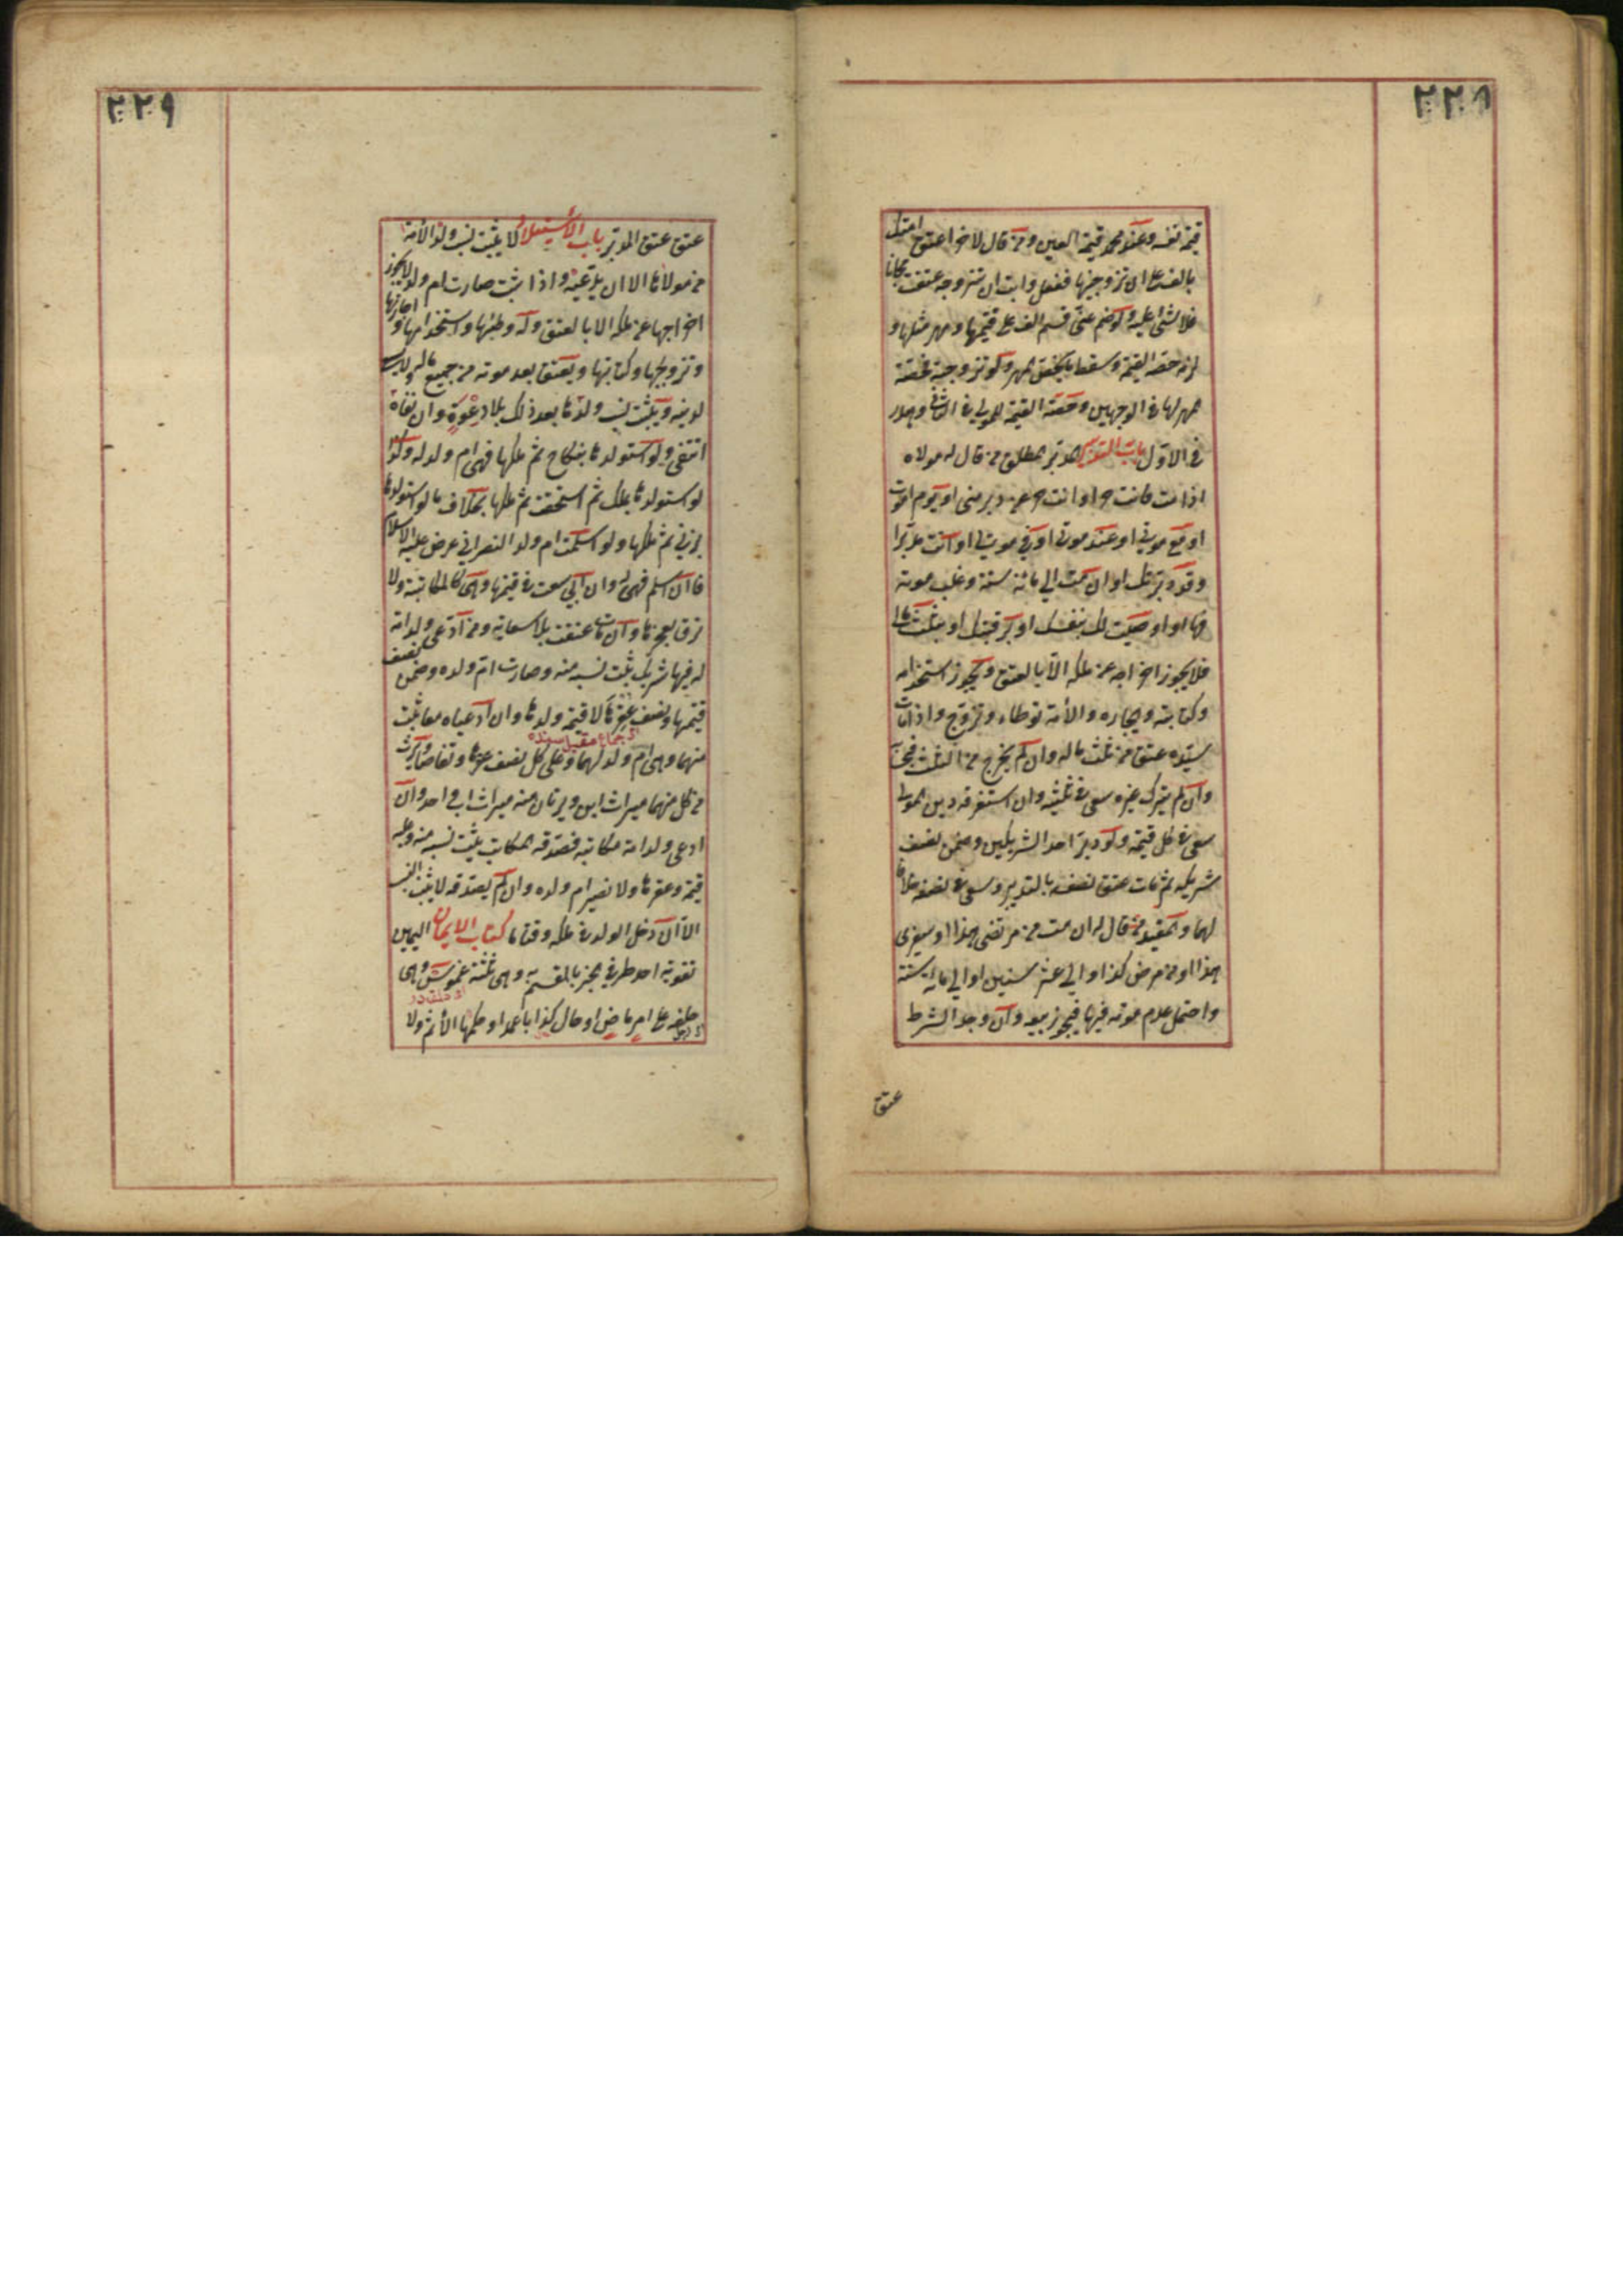 ٢٢٨
قيمة نفسه وعند محمد قيمة العين ومن قال لآخر اعتق امتك
بالف على ان تزوجنيها ففعل وابت ان تتزوجه عتقت مجانا
فلا شئ عليه ولو ضم عنى قسم الف على قيمتها ومهر مثلها و
لزمه حصة القيمة وسقط ما يخص المهر ولو تزوجته فحصة
مهر لها في الوجهين وحصة القيمة للمولى في الثاني وهدر
في الاول باب التدبير المدبر المطلق من قال له مولاه
اذا مت فانت حر او انت حر عن دبر منى او يوم اموت
او مع موتي او عند موتي او في موتي او انت مدبر
وقد دبرتك او ان مت الى مائة سنة وغلب موته
فيها او اوصيت لك بنفسك او برقبتك او بثلث مالي
فلا يجوز اخراجه عن ملكه الا بالعتق ويجوز استخدامه
وكتابته وايجاره والأمة توطاء وتزوج واذا مات
سيده عتق من ثلث ماله وان لم يخرج من الثلث فبحسابه
وان لم يترك غيره سعى في ثلثيه وان استغرقه دين المولى
سعى في كل قيمته ولو دبر احد الشريكين وضمن نصف
شريكه ثم مات عتق نصفه بالتدبير وسعى في نصفه خلافا
لهما والمقيد من قال له ان مت من مرضى هذا او سفرى
هذا او من مرض كذا او الى عشر سنين او الى مائة سنة
واحتمل عدم موته فيها فيجوز بيعه وان وجد الشرط
عتق
٢٢٩
عتق عتق المدبر باب الاستيلاد لا يثبت نسب ولد الأمة
من مولاها الا ان يدعيه واذا ثبت صارت ام ولد لا يجوز
اخراجها عن ملكه الا بالعتق وله وطئها واستخدامها و اجارتها
وتزويجها وكتابتها ويعتق بعد موته من جميع ماله ولا يسعى
لدينه ويثبت نسب ولدها بعد ذلك بلا دعوة وان نفاه
انتفى ولو استولدها بنكاح ثم ملكها فهى ام ولد له وكذا
لو استولدها بملك ثم استحقت ثم ملكها بخلاف ما لو استولدها
بزنى ثم ملكها ولو اسلمت ام ولد النصراني عرض عليه الاسلام
فان اسلم فهى له وان ابى سعت في قيمتها وهى كالمكاتبة ولا
ترق بعجزها وان مات عتقت بلا سعاية ومن ادعى ولد امة
له فيها شريك يثبت نسبه منه وصارت ام ولده وضمن نصف
قيمتها ونصف عقرها لا قيمة ولدها وان ادعياه معا يثبت
منهما وهى ام ولد لهما وعلى كل نصف عقرها وتقاصا ويرث
من كل منهما ميراث ابن ويرثان منه ميراث اب واحد وان
ادعى ولد امة مكاتبه فصدقه المكاتب يثبت نسبه منه وعليه
قيمته وعقرها ولا تصير ام ولده وان لم يصدقه لا يثبت النسب
الا ان دخل الولد في ملكه وقتا ما كتاب الايمان اليمين
تقوية احد طرفي الخبر بالمقسم به وهى ثلثة غموس وهى
حلفه على امر ماض او حال كذبا عمدا وحكمها الأثم ولا